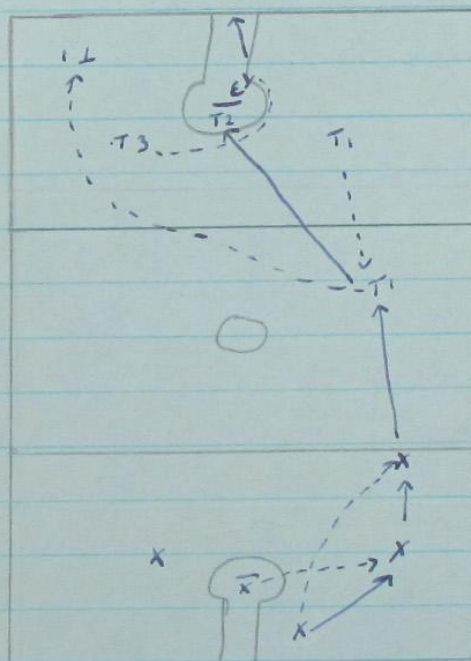 T1
T2
T3 T1
T1
X
X X
X
X